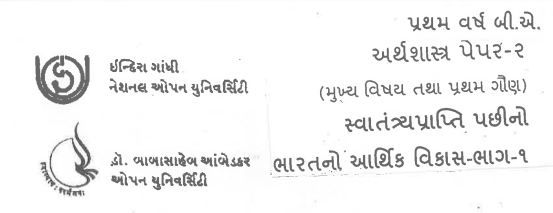 પ્રથમ વર્ષ બી.એ.
અર્થશાસ્ત્ર પેપર-૨
(મુખ્ય વિષય તથા પ્રથમ ગૌણ)
સ્વાતંત્ર્યપ્રાપ્તિ પછીનો
ભારતનો આર્થિક વિકાસ-ભાગ-૧
ઈન્દિરા ગાંધી
નેશનલ ઓપન યુનિવર્સિટી
ડૉ. બાબાસાહેબ આંબેડકર
ઓપન યુનિવર્સિટી